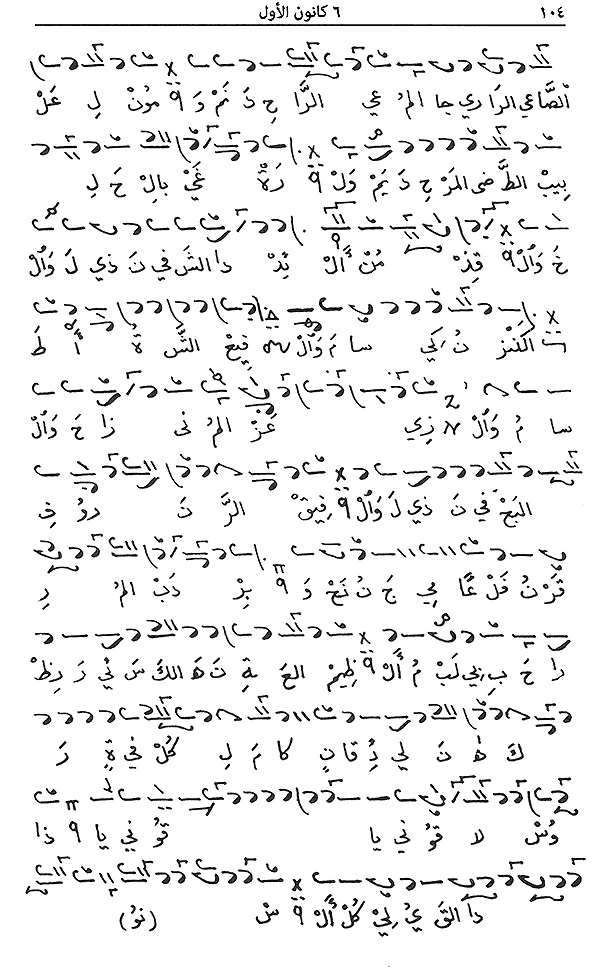 ١٠٤ ٦ كانون الأول
الصَّاعي الرَاري جا المُ عي الرَّا حِ دَ نَمْ وَ ٩ مُونْ لِ عَلْ
بِيبْ الطَّ ضى المَرْ حِ دَ يَمْ وَلْ ٩ رَةْ غَيْ بالِ حَ لِ
خَ وَالْ ٩ قِذْ مُنْ أَلْ ئِدْ دا الشَ في نَ ذي لَ وَالْ
ت الكَنْزِ نُ كي سا مَ وَالْ فيعْ الشَّ ةُ أَ طَ
سا مُ وَالْ زي عَزْ المُ نى زا حَ وَالْ
البَخْ في نَ ذي لَ وَالْ ٩ فِيقْ الرَّ نَ دوُ فِ
قُرْ نُ قَلْ عًا مي جَ نُ نَحْ وَ ٩ بِرْ دَبْ المُ رِ
دا حَ بِ بي لَبْ مُ أَلْ ٩ ظِيمْ العَ ةِ نَ هَ الكَ سَ ني رَ دِظْ
كَ هٰ نَ لي ذِ قانٍ كا مَ لِ كُلْ في ةٍ رَ
وُسْ لا قوُ ني يا قوُ ني يا ٩ ذا
دا القَ يُ لِيْ كُلْ أَلْ ٩ سْ (نوُ)